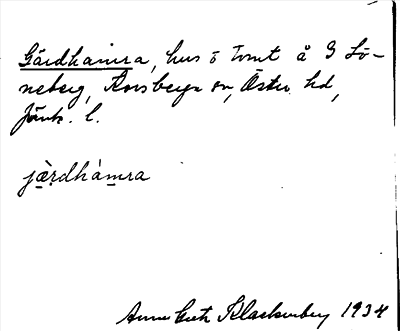 Gärdhamra, hus o tomt å S Lö-
neberg, Korsberga sn, Östra hd,
Jönk. l.
jæ̀rdhàmra
Anna Greta Klackenberg 1934